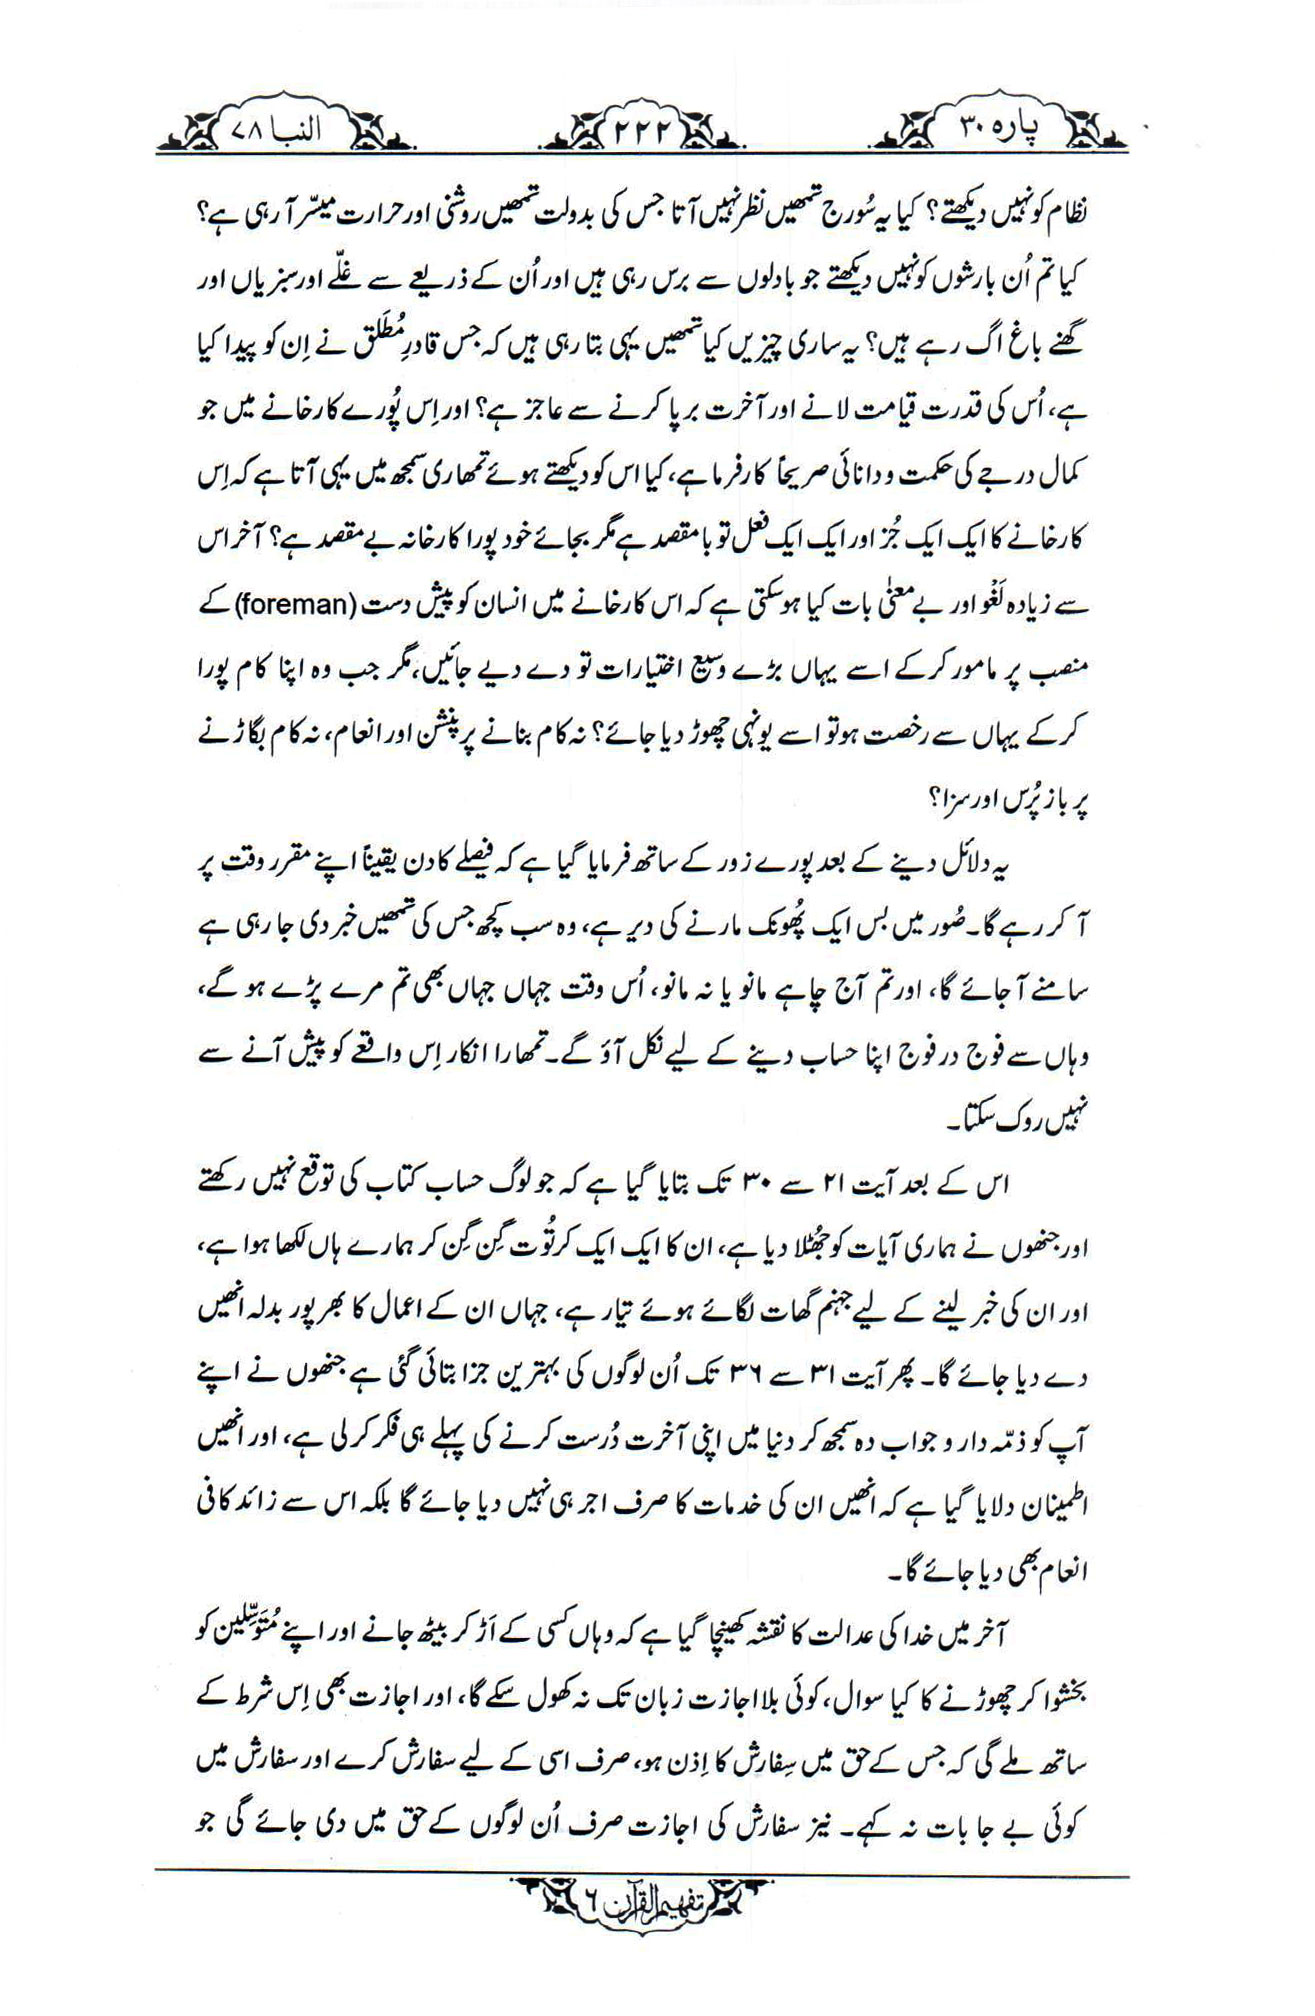 پارہ ۳۰
۲۲۲
النبا ۷۸
نظام کو نہیں دیکھتے؟ کیا یہ سُورج تمھیں نظر نہیں آتا جس کی بدولت تمھیں روشنی اور حرارت میسّر آ رہی ہے؟
کیا تم اُن بارشوں کو نہیں دیکھتے جو بادلوں سے برس رہی ہیں اور اُن کے ذریعے سے غلّے اور سبزیاں اور
گھنے باغ اگ رہے ہیں؟ یہ ساری چیزیں کیا تمھیں یہی بتا رہی ہیں کہ جس قادرِ مُطلَق نے اِن کو پیدا کیا
ہے، اُس کی قدرت قیامت لانے اور آخرت برپا کرنے سے عاجز ہے؟ اور اِس پُورے کارخانے میں جو
کمال درجے کی حکمت و دانائی صریحاً کارفرما ہے، کیا اس کو دیکھتے ہوئے تمھاری سمجھ میں یہی آتا ہے کہ اِس
کارخانے کا ایک ایک جُز اور ایک ایک فعل تو با مقصد ہے مگر بجائے خود پورا کارخانہ بے مقصد ہے؟ آخر اس
سے زیادہ لَغْو اور بے معنٰی بات کیا ہو سکتی ہے کہ اس کارخانے میں انسان کو پیش دست (foreman) کے
منصب پر مامور کر کے اسے یہاں بڑے وسیع اختیارات تو دے دیے جائیں، مگر جب وہ اپنا کام پورا
کر کے یہاں سے رخصت ہو تو اسے یونہی چھوڑ دیا جائے؟ نہ کام بنانے پر پنشن اور انعام، نہ کام بگاڑنے
پر باز پُرس اور سزا؟
یہ دلائل دینے کے بعد پورے زور کے ساتھ فرمایا گیا ہے کہ فیصلے کا دن یقیناً اپنے مقرر وقت پر
آ کر رہے گا۔ صُور میں بس ایک پُھونک مارنے کی دیر ہے، وہ سب کچھ جس کی تمھیں خبر دی جا رہی ہے
سامنے آ جائے گا، اور تم آج چاہے مانو یا نہ مانو، اُس وقت جہاں جہاں بھی تم مرے پڑے ہو گے،
وہاں سے فوج در فوج اپنا حساب دینے کے لیے نکل آؤ گے۔ تمھارا انکار اِس واقعے کو پیش آنے سے
نہیں روک سکتا۔
اس کے بعد آیت ۲۱ سے ۳۰ تک بتایا گیا ہے کہ جو لوگ حساب کتاب کی توقع نہیں رکھتے
اور جنھوں نے ہماری آیات کو جُھٹلا دیا ہے، ان کا ایک ایک کرتُوت گِن گِن کر ہمارے ہاں لکھا ہوا ہے،
اور ان کی خبر لینے کے لیے جہنم گھات لگائے ہوئے تیار ہے، جہاں ان کے اعمال کا بھرپور بدلہ انھیں
دے دیا جائے گا۔ پھر آیت ۳۱ سے ۳۶ تک اُن لوگوں کی بہترین جزا بتائی گئی ہے جنھوں نے اپنے
آپ کو ذمّہ دار و جواب دہ سمجھ کر دنیا میں اپنی آخرت دُرست کرنے کی پہلے ہی فکر کر لی ہے، اور انھیں
اطمینان دلایا گیا ہے کہ انھیں ان کی خدمات کا صرف اجر ہی نہیں دیا جائے گا بلکہ اس سے زائد کافی
انعام بھی دیا جائے گا۔
آخر میں خدا کی عدالت کا نقشہ کھینچا گیا ہے کہ وہاں کسی کے اَڑ کر بیٹھ جانے اور اپنے مُتَوَسِّلین کو
بخشوا کر چھوڑنے کا کیا سوال، کوئی بلا اجازت زبان تک نہ کھول سکے گا، اور اجازت بھی اِس شرط کے
ساتھ ملے گی کہ جس کے حق میں سِفارش کا اِذن ہو، صرف اسی کے لیے سفارش کرے اور سفارش میں
کوئی بے جا بات نہ کہے۔ نیز سفارش کی اجازت صرف اُن لوگوں کے حق میں دی جائے گی جو
تفہیم القرآن ۶